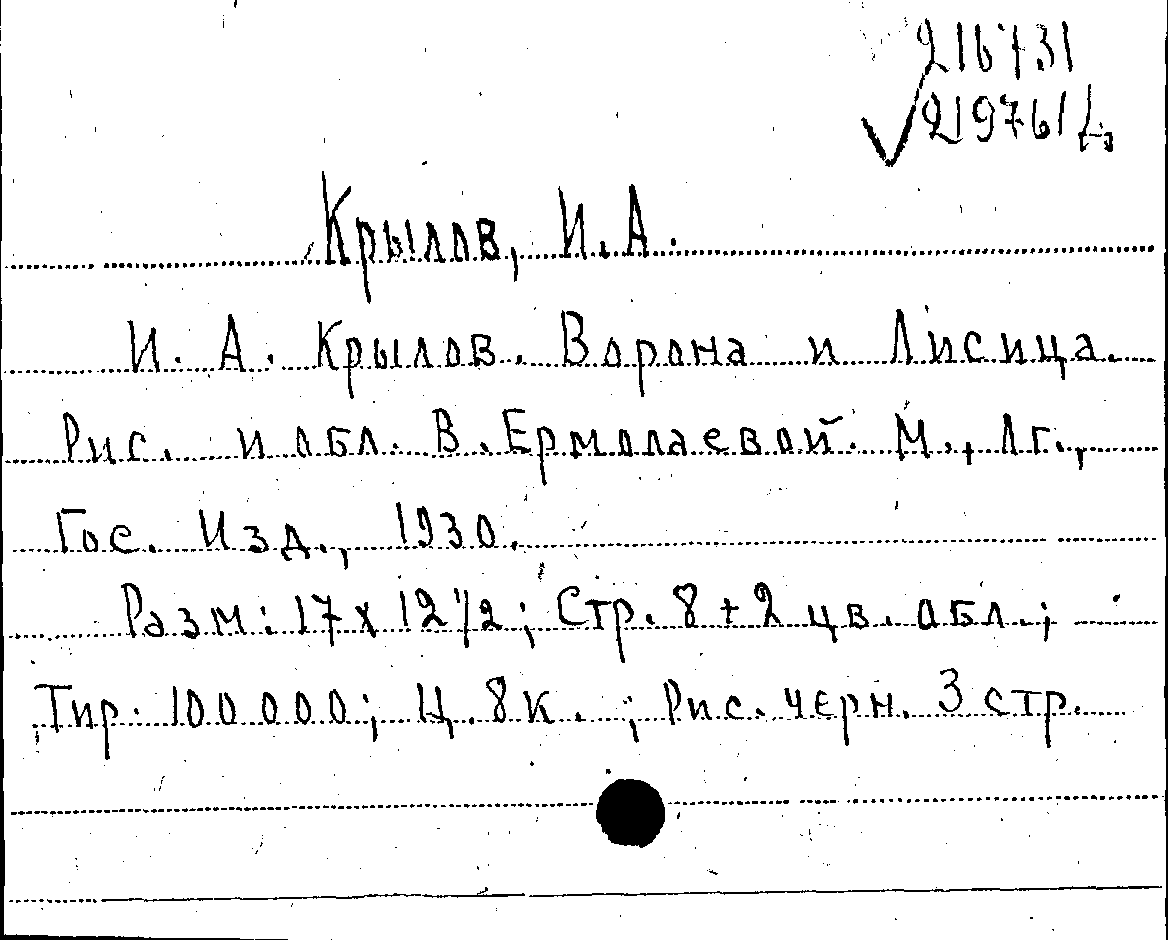 216731
21976/Д
Крылов, И.А.
И. А. Крылов. Ворона и Лисица.
Рис. и обл. В. Ермолаевой. М., Лг.,
Гос. Изд., 1930.
Разм: 17 х 12 1/2; Стр. 8 + 2 цв. обл.;
Тир. 100 000; Ц. 8 к. ; Рис. черн. 3 стр.